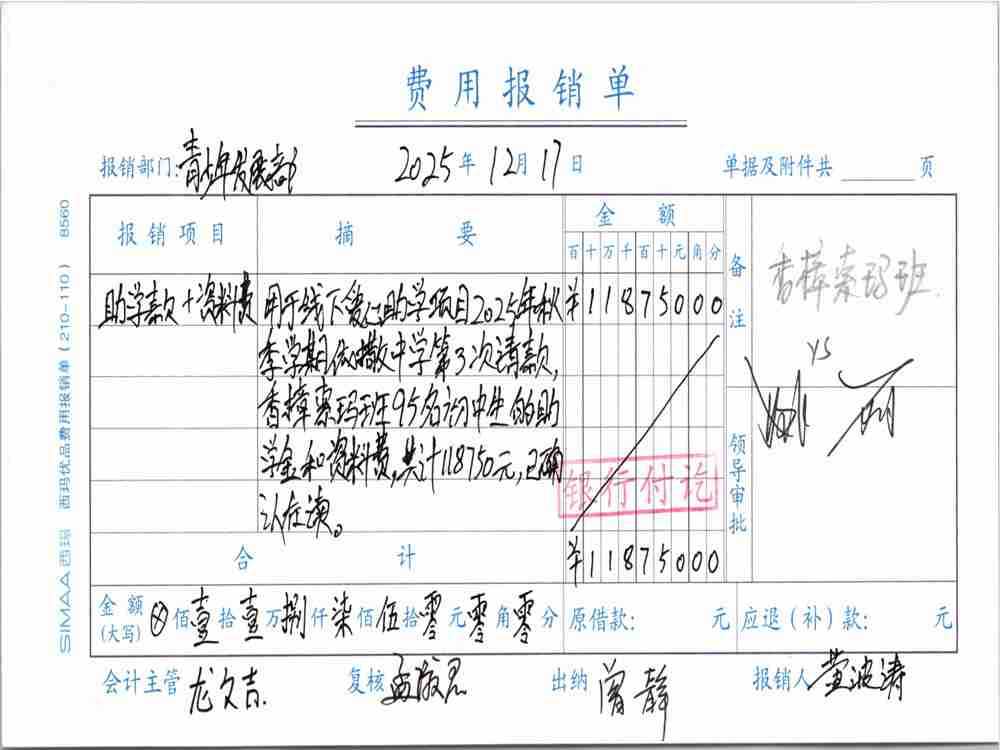 费用报销单
报销部门：青少年发展部 2025年12月17日 单据及附件共 页
报销项目 摘要 金额 备注
百十万千百十元角分
助学款+资料费 用于线下爱心助学项目2025年秋 ¥11875000
季学期依撒中学第3次请款，
香樟索玛班95名初中生的助
学金和资料费，共计118750元，已确
认在读。
香樟索玛班.
YS
领导审批
银行付讫
合计 ¥11875000
金额(大写) ⊗佰壹拾壹万捌仟柒佰伍拾零元零角零分 原借款： 元 应退（补）款： 元
会计主管 尤文吉 复核 孟 出纳 曾静 报销人 黄波涛
SIMAA西玛 西玛优品费用报销单（210-110） 8560